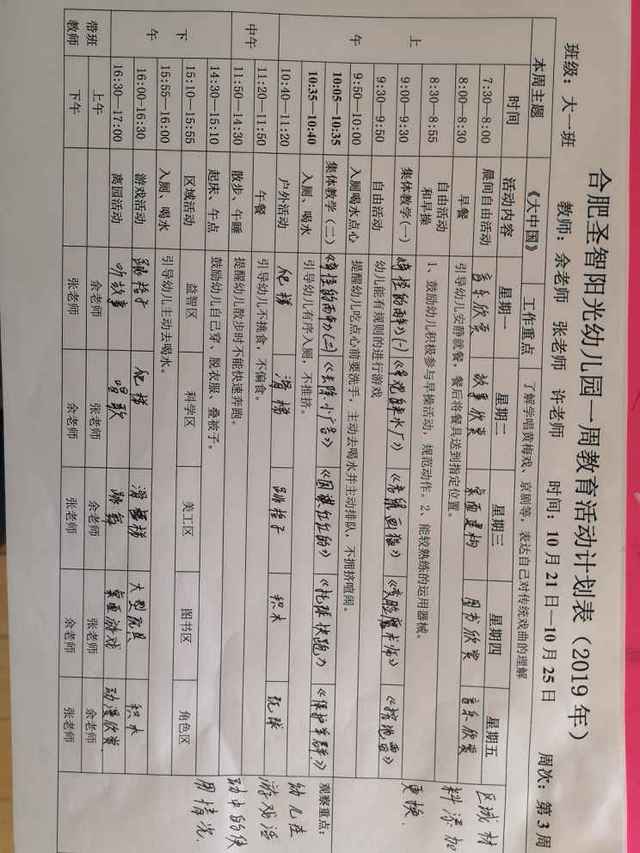 合肥圣智阳光幼儿园一周教育活动计划表（2019 年）
班级：大一班 教师：余老师 张老师 许老师 时间：10 月 21 日—10 月 25 日 周次：第 3 周
本周主题 《大中国》 工作重点 了解学唱黄梅戏、京剧等，表达自己对传统戏曲的理解
时间 活动内容 星期一 星期二 星期三 星期四 星期五
上午
7:30—8:00 晨间自由活动 音乐欣赏 故事欣赏 桌面建构 图书欣赏 音乐欣赏
8:00—8:30 早餐 引导幼儿安静就餐，餐后将餐具送到指定位置。
8:30—8:55 自由活动和早操 1、鼓励幼儿积极参与早操活动，规范动作。2、能较熟练的运用器械。
9:00—9:30 集体教学（一）
9:30—9:50 自由活动 幼儿能有规则的进行游戏
9:50—10:00 入厕喝水点心 提醒幼儿吃点心前要洗手，主动去喝水并主动排队，不拥挤喧闹。
10:05—10:35 集体教学（二）
10:35—10:40 入厕、喝水 引导幼儿有序入厕，不推挤。
10:40—11:20 户外活动 爬梯 滑梯 跳格子 积木 玩球
中午
11:20—11:50 午餐 引导幼儿不挑食，不偏食。
11:50—14:30 散步、午睡 提醒幼儿散步时不能快速奔跑。
下午
14:30—15:10 起床、午点 鼓励幼儿自己穿、脱衣服、叠被子。
15:10—15:55 区域活动 益智区 科学区 美工区 图书区 角色区
15:55—16:00 入厕、喝水 引导幼儿主动去喝水。
16:00—16:30 游戏活动 跳格子 爬梯 滑滑梯 大型玩具 积木
16:30—17:00 离园活动 听故事 唱歌 跳舞 桌面游戏 动漫欣赏
带班教师 上午 余老师 张老师 余老师 张老师 余老师
下午 张老师 余老师 张老师 余老师 张老师
区域材
料添加
更换.
观察重点：
幼儿在
游戏活
动中的使
用情况.